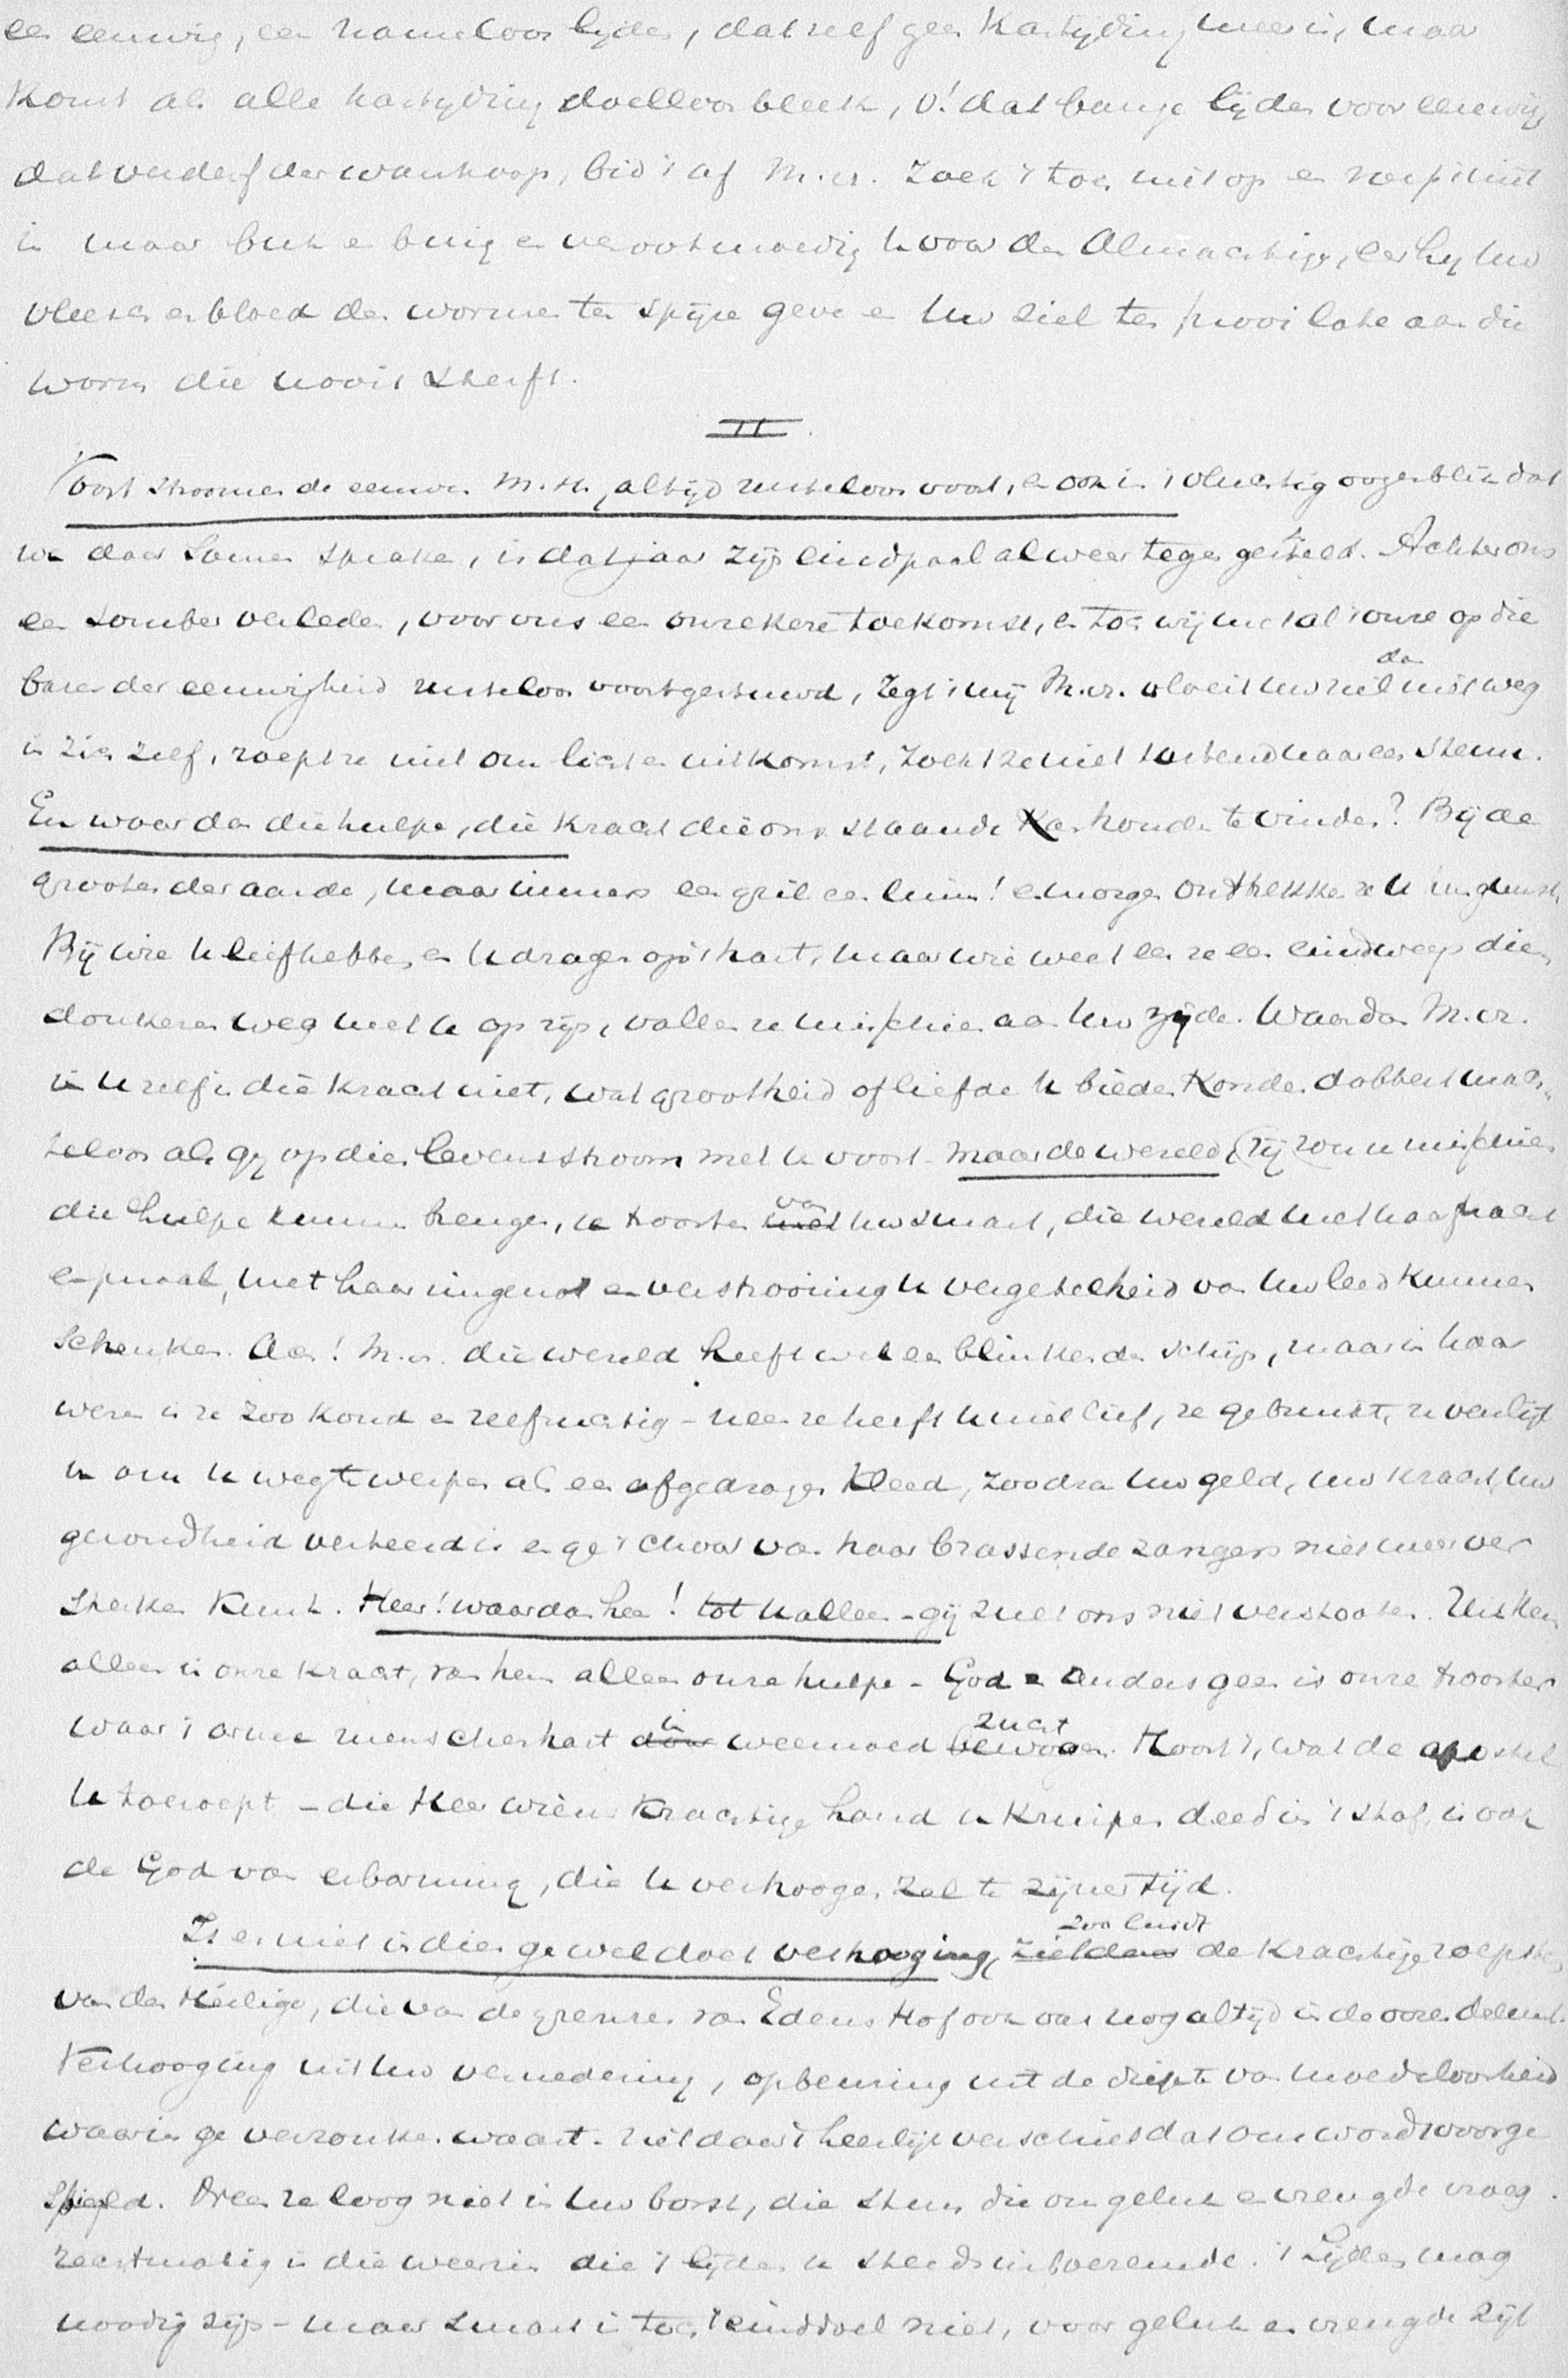 een eeuwig, een nameloos lijden, dat zelf geen kastyding meer is, maar
komt als alle kastyding doelloos bleek, o! dat bange lijden voor eeuwig
dat verderf der wanhoop, bid 't af M.H. Zoek 't toch niet op en roep 't niet
in maar buk en buig en verootmoedig U voor den Almachtige, eer hy Uw
vleesch en bloed den wormen ter spijze geve en Uw ziel ter prooi late aan dien
worm die nooit sterft.
II.
Voort stroomen de eeuwen M.H., altijd rusteloos voort, en ook in 't vluchtig oogenblik dat
we daar samen spraken, is dat jaar zijn eindpaal alweer tegen gesneld. Achter ons
een somber verleden, voor ons een onzekere toekomst, en toch wij met al 't onze op die
baren der eeuwigheid rusteloos voortgestuwd, Zegt 't mij M.H. vloeit Uw ziel dan niet weg
in zich zelf, roept ze niet om licht en uitkomst, zoekt ze niet tastend naar een steun.
En waar dan die hulpe, die kracht die ons staande kan houden te vinden? Bij de
grooten der aarde, maar immers een gril een luim! en morgen onttrekken ze U hun gunst,
Bij wie U liefhebben, en U dragen op 't hart, maar wie weet eer ze een eindweegs dien
donkeren weg met U op zijn, vallen ze misschien aan Uw zijde. Waar dan M.H.
in U zelf is die kracht niet, wat grootheid of liefde U bieden konden dobbert mach-
teloos als gij op dien levensstroom met U voort - maar de wereld, (zij zou U misschien
die hulpe kunnen brengen, U troosten van Uw smart, die wereld met haar pracht
en praal, met haar zingenot en verstrooiing U vergetelheid van Uw leed kunnen
schenken. Ach! M.H. die wereld heeft wel een blinkenden schijn, maar in haar
wezen is ze zoo koud en zelfzuchtig - neen ze heeft U niet lief, ze gebruikt, ze verslijt
U om U weg te werpen als een afgedragen kleed, zoodra Uw geld, Uw kracht, Uw
gezondheid verteerd is en ge 't choor van haar brassende zangers niet meer ver
sterken kunt. Heer! waar dan heen! tot U alleen - gij zult ons niet verstooten. Uit Hem
alleen is onze kracht, van hem alleen onze hulpe - God en anders geen is onze trooster
waar 't arme menschenhart in weemoed zucht. Hoort 't, wat de apostel
U toeroept - die Heer wiens krachtige hand U kruipen deed in 't stof, is ook
de God van erbarming, die U verhoogen zal te zijner tijd.
Is er niet in dien ge wel doet verhooging, zoo luidt de krachtige roepstem
van den Heilige, die van de grenzen van Edens Hof ook ons nog altijd in de ooren dreunt.
Verhooging uit Uw vernedering, opbeuring uit de diepte van moedeloosheid
waarin ge verzonken waart. Ziet daar 't heerlijk verschiet dat ons wordt voorge
spiegeld. Neen ze loog niet in Uw borst, die stem die om geluk en vreugde vroeg.
rechtmatig is die weerzin die 't lijden U steeds inboezemde. 't Lijden mag
noodig zijn - maar smart is toch 't einddoel niet, voor geluk en vreugde zijt